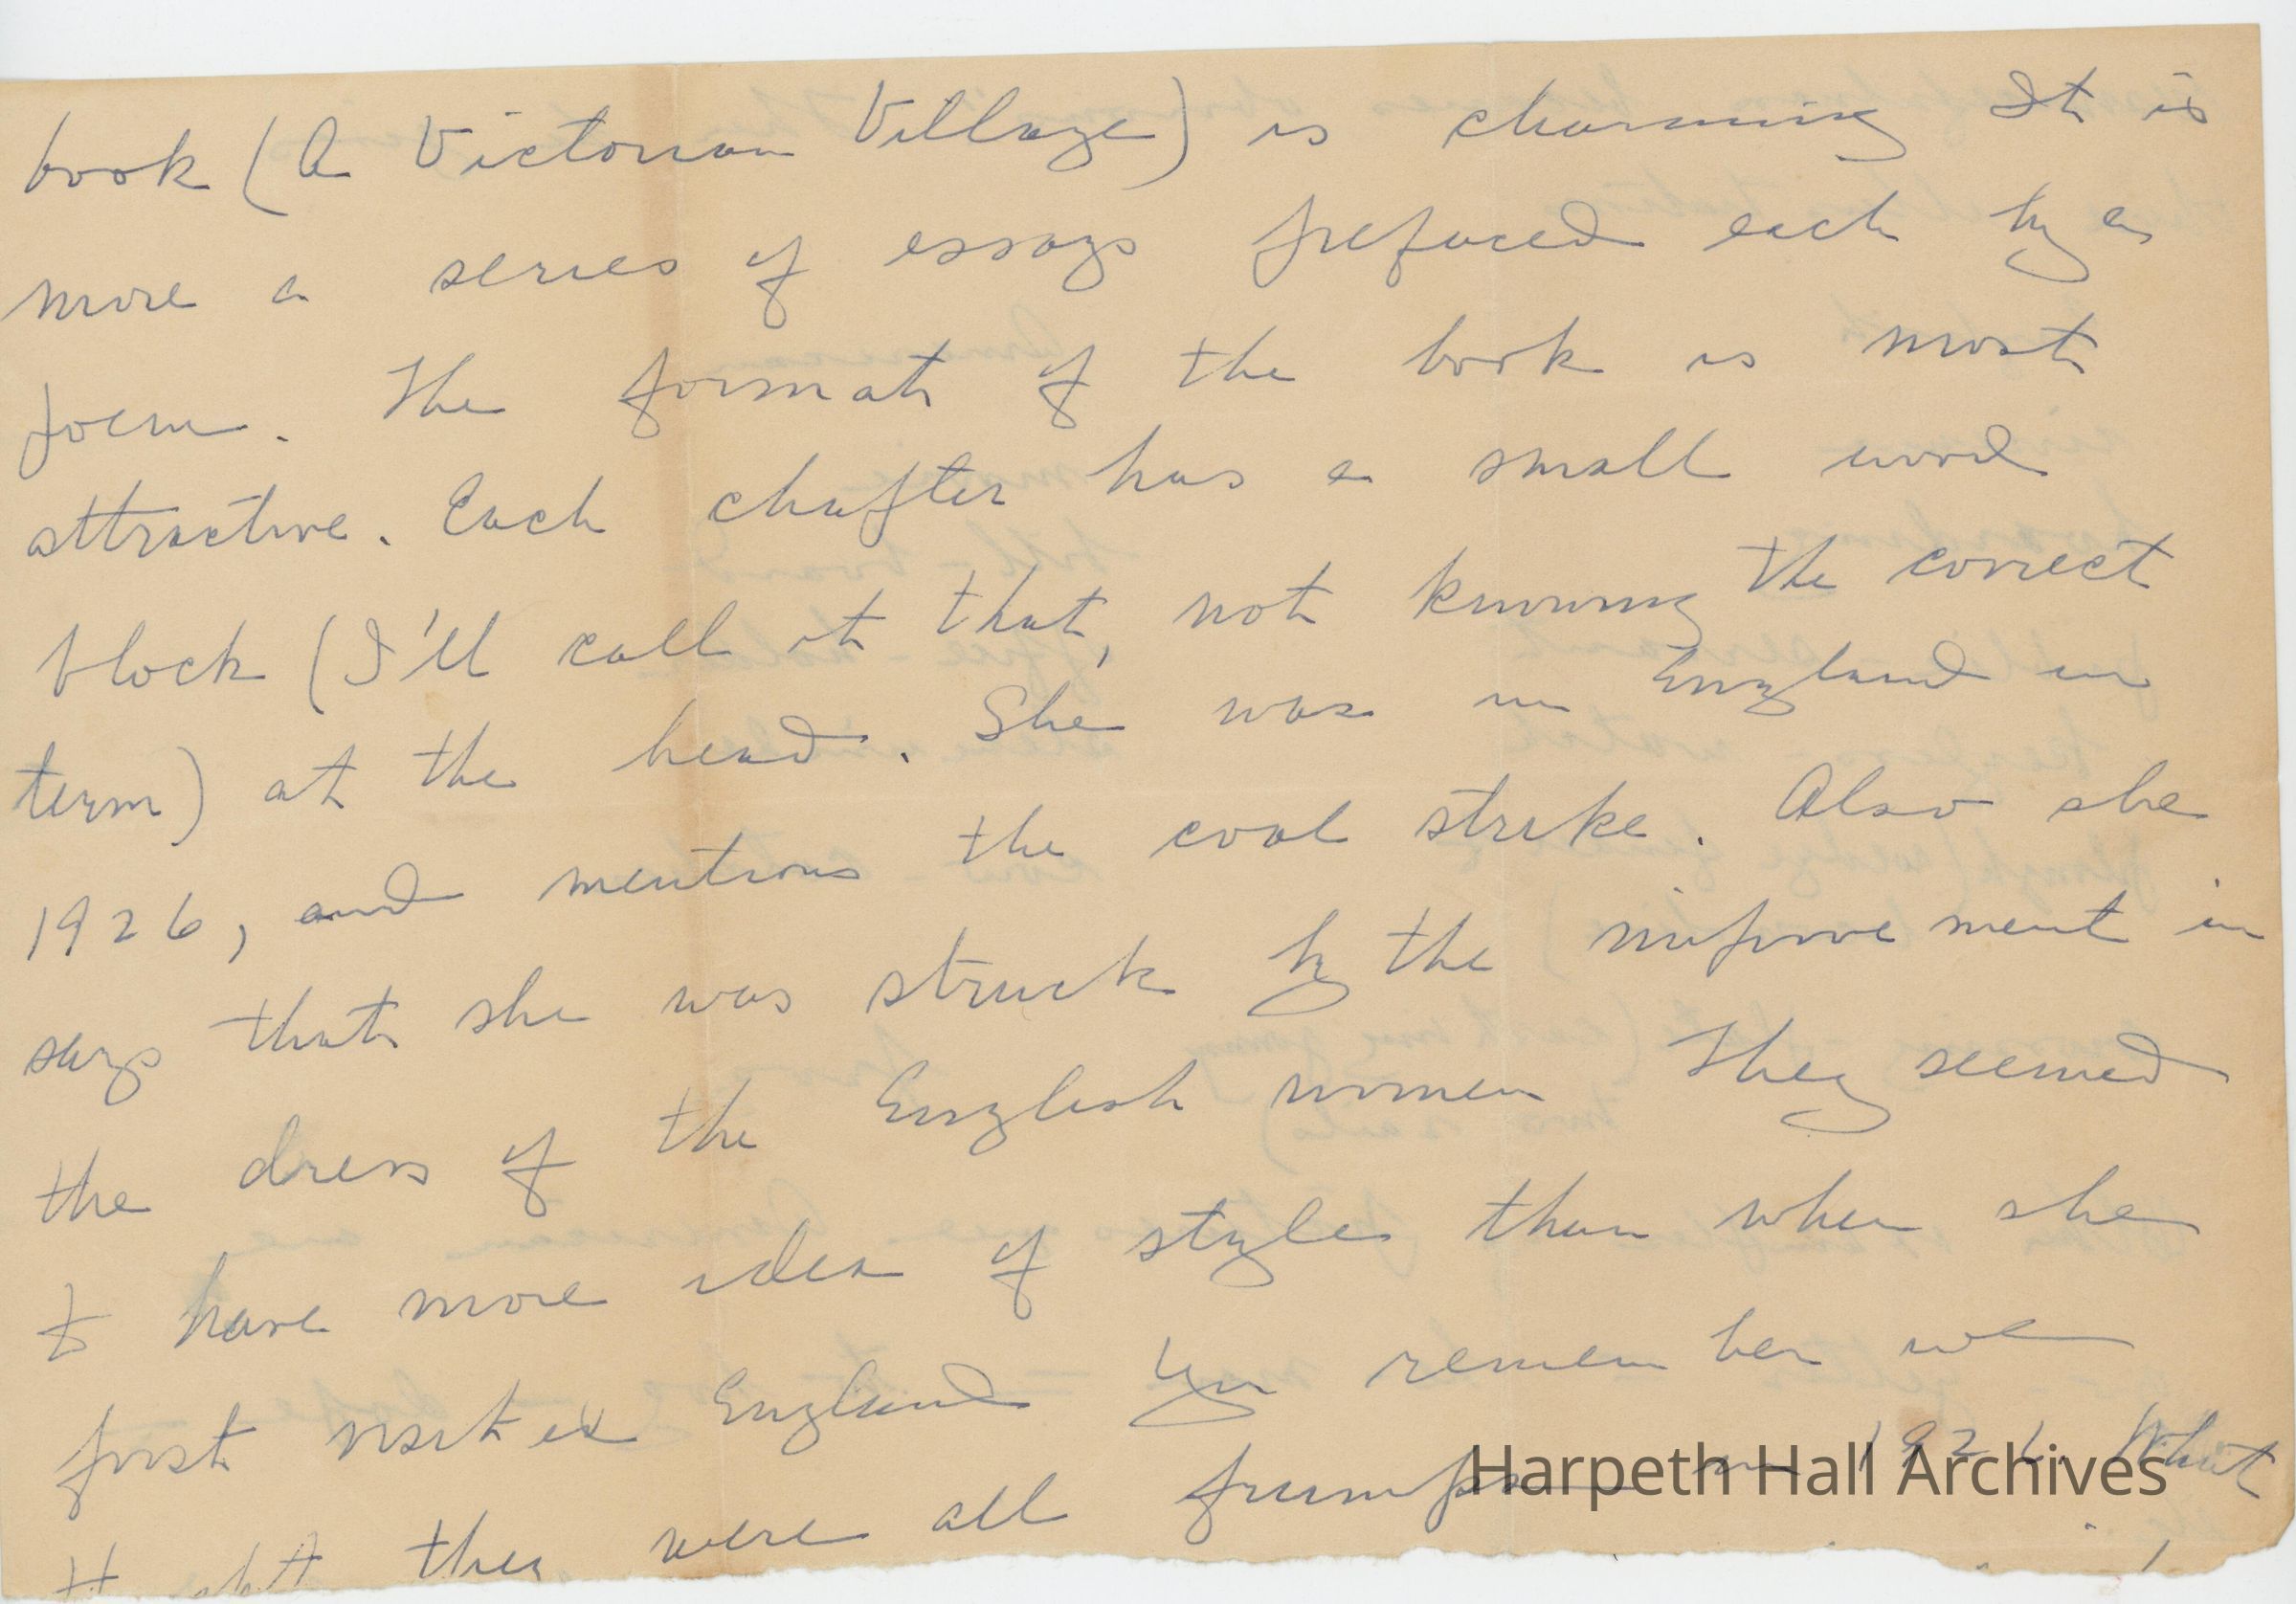 book (A Victorian Village) is charming It is
more a series of essays prefaced each by a
poem. The format of the book is most
attractive. Each chapter has a small wood
block (I'll call it that, not knowing the correct
term) at the head. She was in England in
1926, and mentions the coal strike. Also she
says that she was struck by the improvement in
the dress of the English women They seemed
to have more idea of style than when she
first visited England You remember we
thought they were all frumps in 1926. What
Harpeth Hall Archives